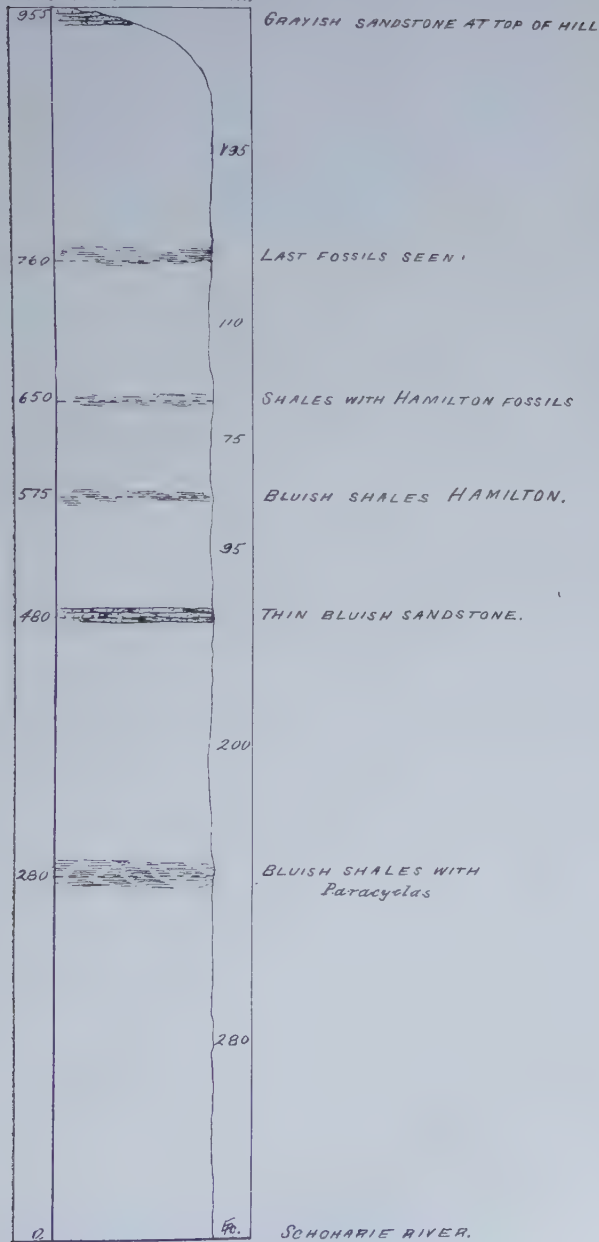 955 GRAYISH SANDSTONE AT TOP OF HILL
195
760 LAST FOSSILS SEEN.
110
650 SHALES WITH HAMILTON FOSSILS
75
575 BLUISH SHALES HAMILTON.
95
480 THIN BLUISH SANDSTONE.
200
280 BLUISH SHALES WITH
Paracyclas
280
SCHOHARIE RIVER.